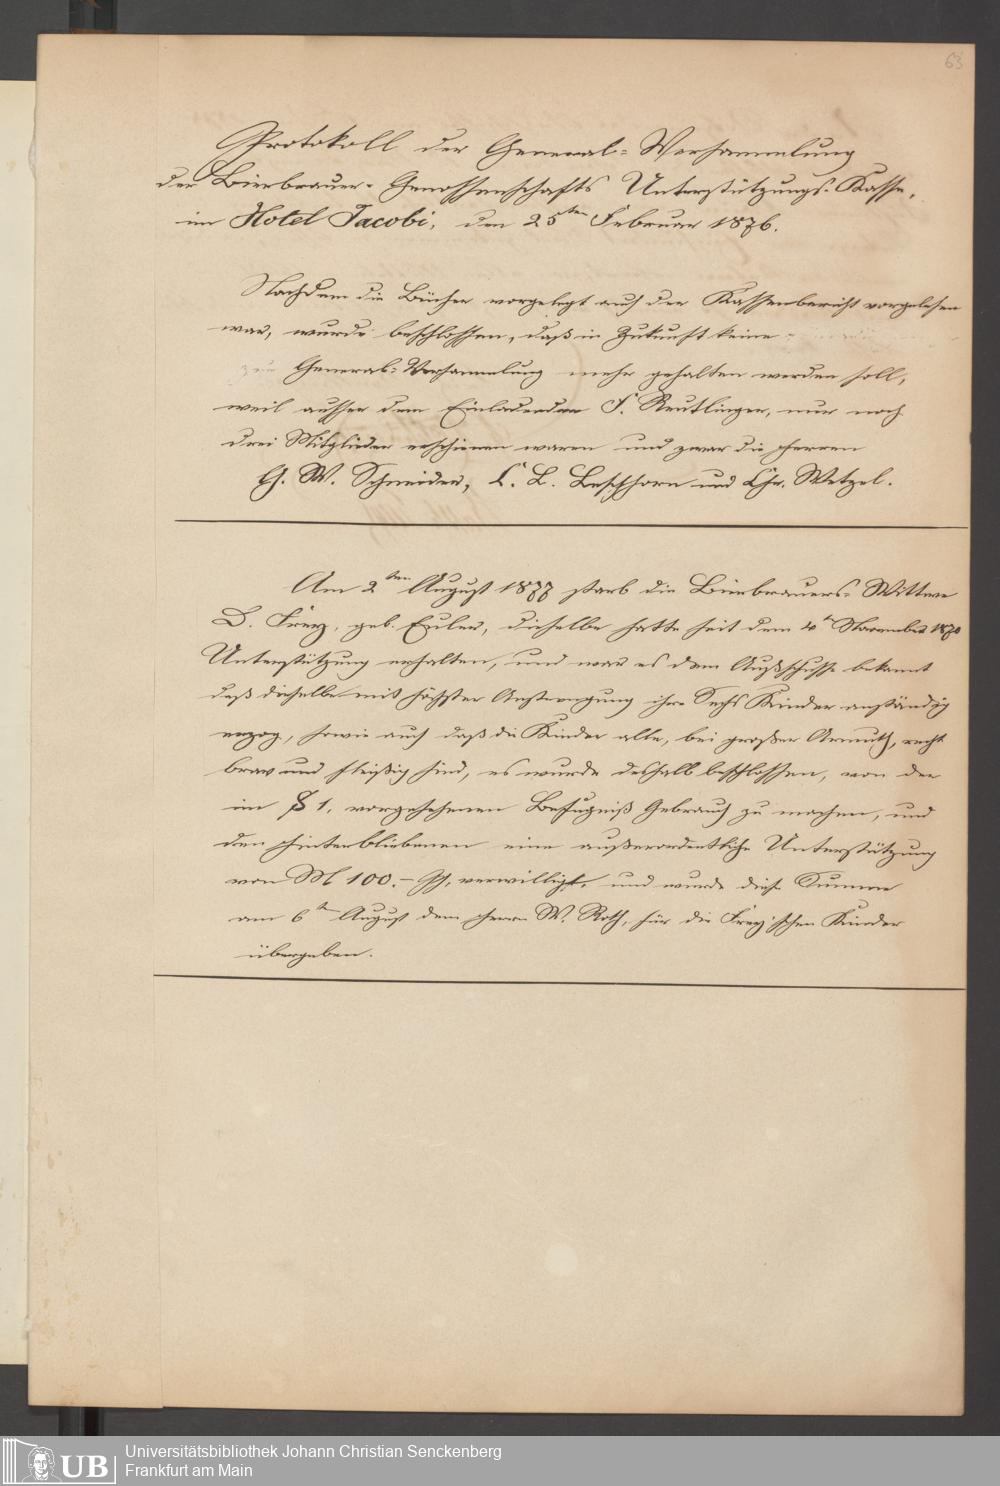 63
Protokoll der General-Versammlung
der Bierbrauer-Genossenschafts Unterstützungs-Kasse,
im Hotel Jacobi, den 25ten Februar 1876.
Nachdem die Bücher vorgelegt auch der Kassenbericht vorgelesen
war, wurde beschlossen, daß in Zukunft keine
General-Versammlung mehr gehalten werden soll,
weil ausser dem Einladenden J. Reutlinger, nur noch
drei Mitglieder erschienen waren und zwar die Herren
G. W. Schneider, C. L. Beschhorn und Chr. Wetzel.
Am 2ten August 1877 starb die Bierbrauers-Wittwe
D. Frey, geb. Euler, dieselbe hatte seit dem 4tn November 1870
Unterstützung erhalten, und war es dem Außschusse bekannt
daß dieselbe mit höchster Anstrengung ihre Sechs Kinder anständig
erzog, sowie auch daß die Kinder alle, bei großer Armuth, recht
brav und fleißig sind, es wurde deshalb beschlossen, von der
im § 1, vorgesehenen Befugniß Gebrauch zu machen, und
den Hinterbliebenen eine außerordentliche Unterstützung
von M 100.– verwilligt, und wurde diese Summe
am 6tn August dem Herrn W. Roth, für die Frey'schen Kinder
übergeben.
UB
Universitätsbibliothek Johann Christian Senckenberg
Frankfurt am Main